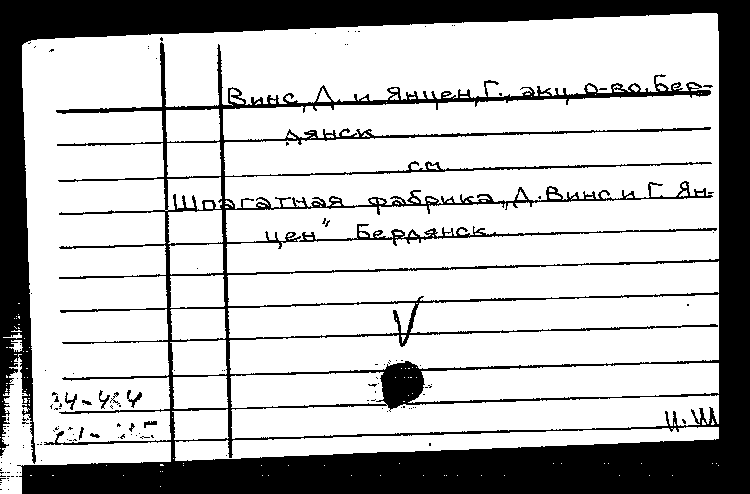 Винс, Д. и Янцен, Г., акц. о-во. Бер-
дянск
см.
Шпагатная фабрика „Д. Винс и Г. Ян-
цен" Бердянск.
V
И.Ш